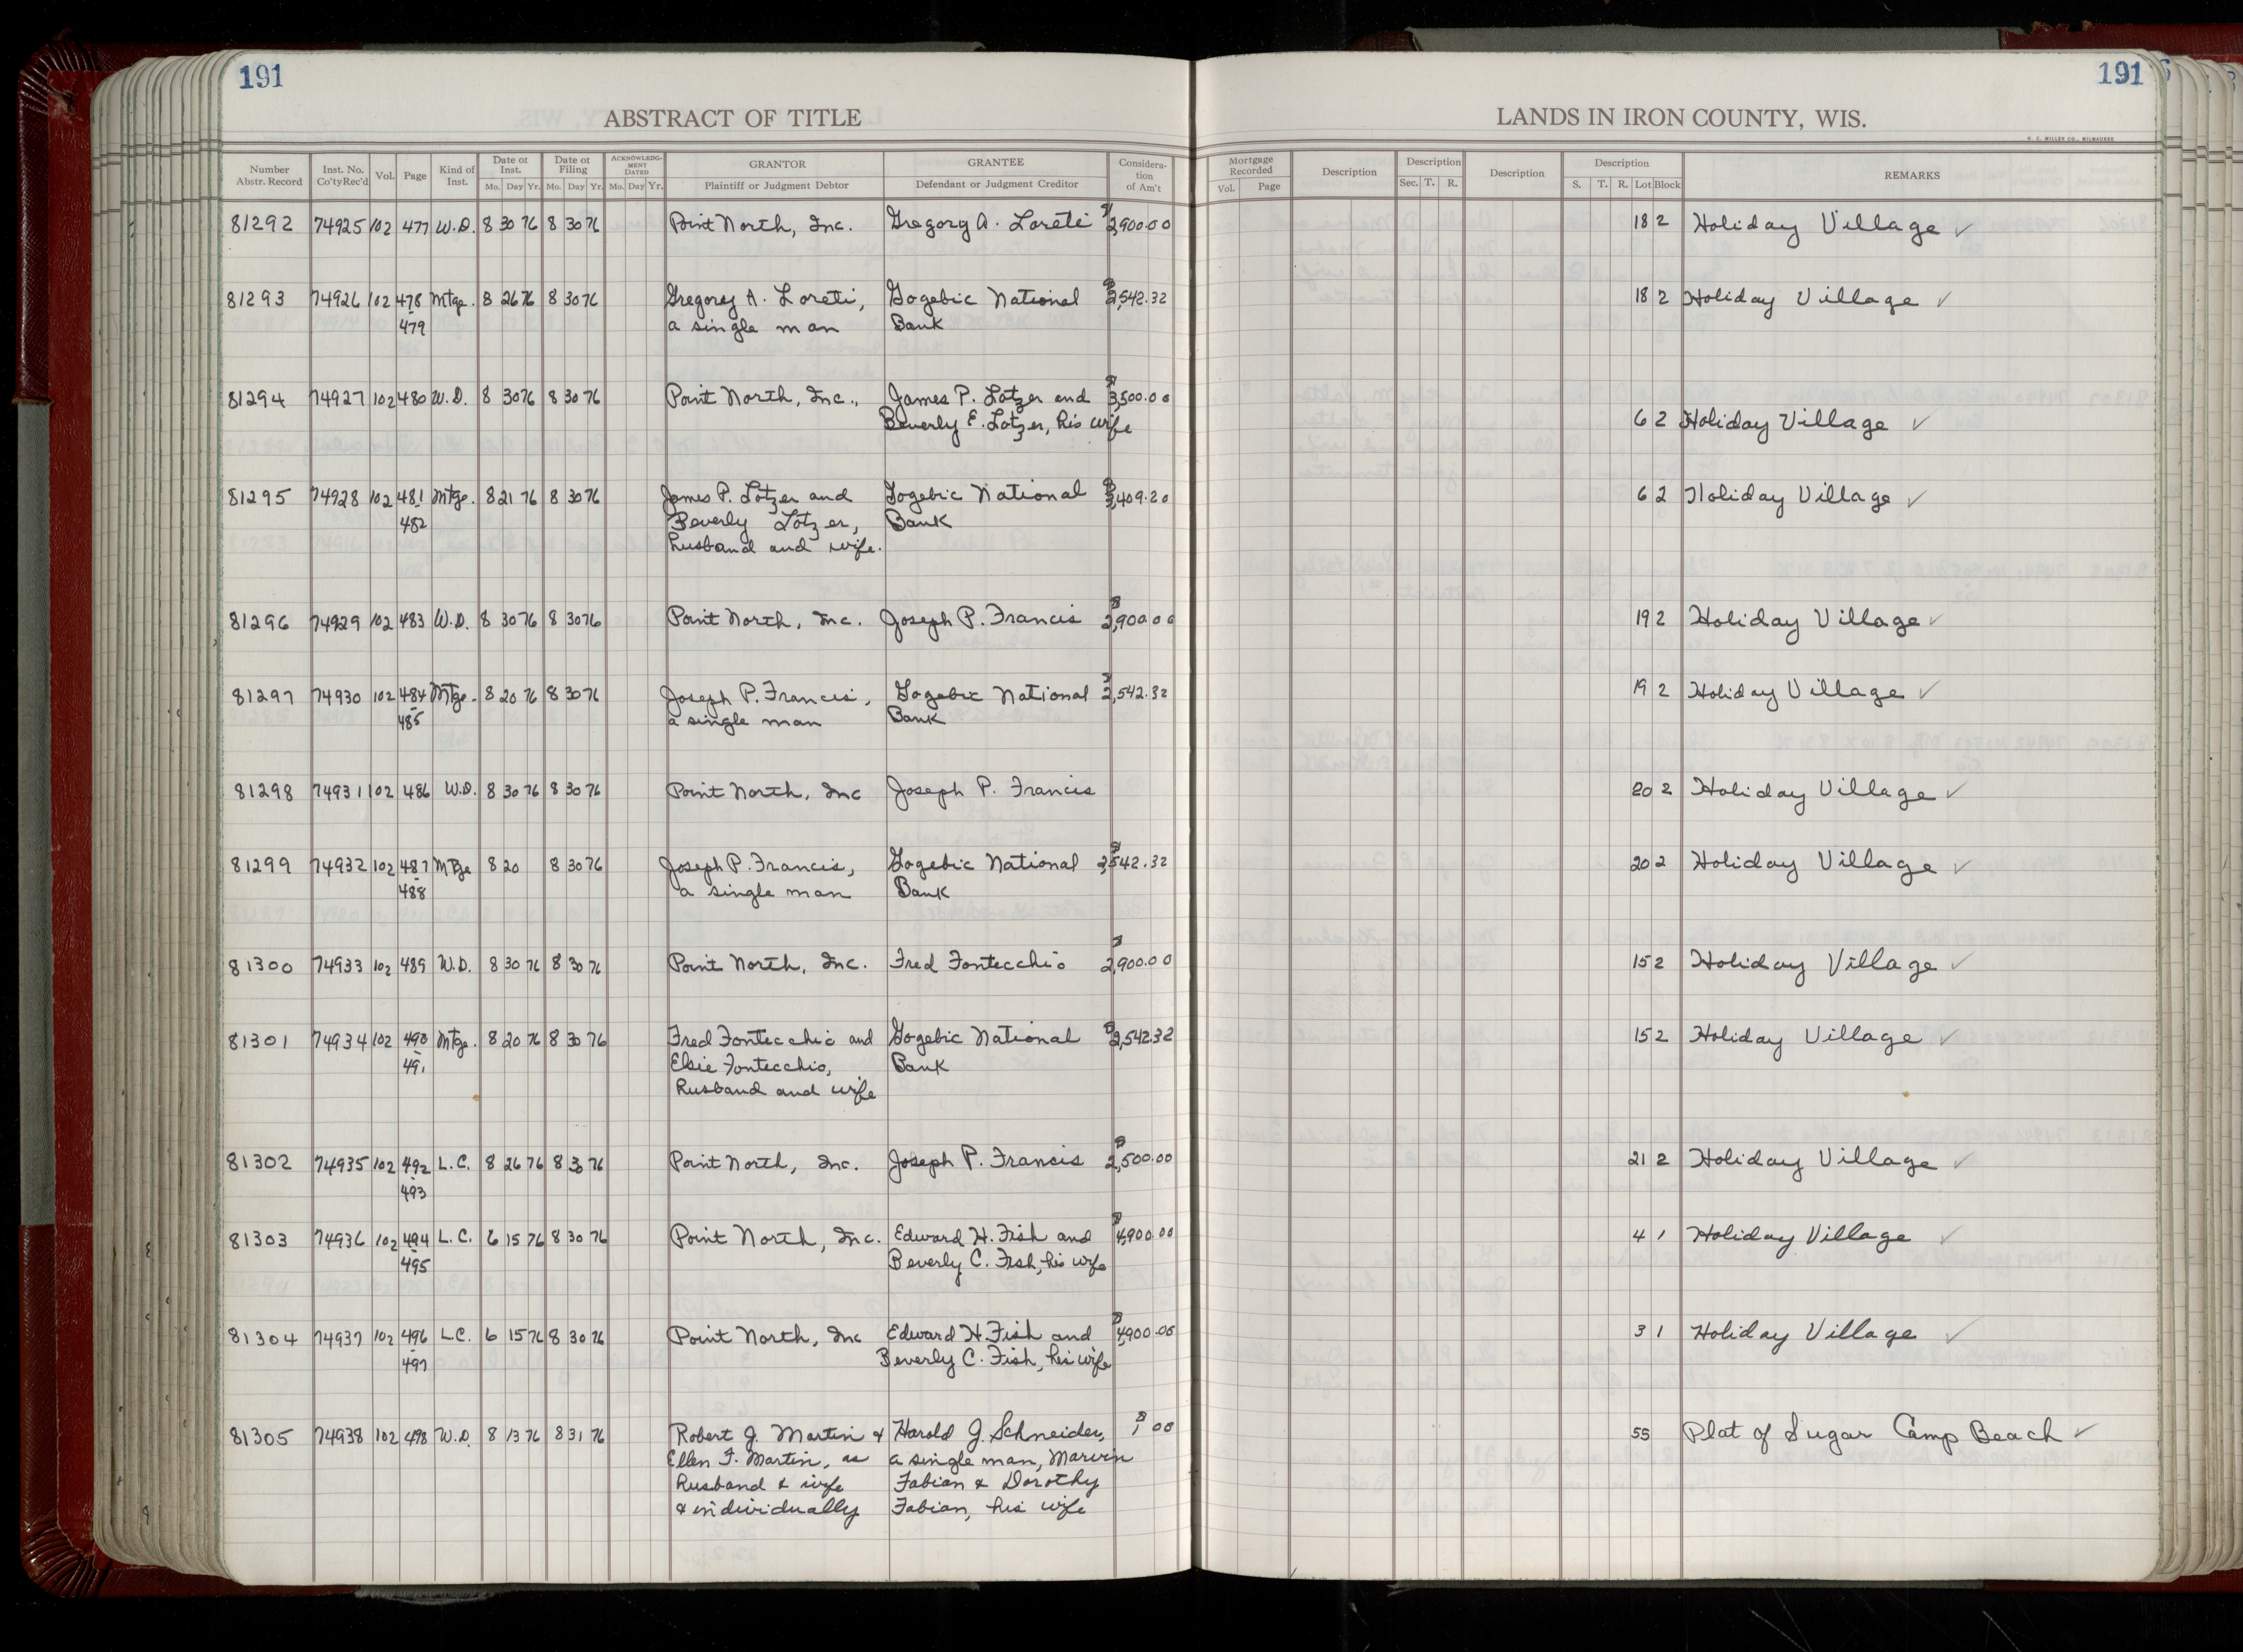 191
191
ABSTRACT OF TITLE
LANDS IN IRON COUNTY, WIS.
H. C. MILLER CO., MILWAUKEE
Number Abstr. Record | Inst. No. Co'ty Rec'd | Vol. | Page | Kind of Inst. | Date of Inst. Mo. Day Yr. | Date of Filing Mo. Day Yr. | ACKNOWLEDGMENT DATED Mo. Day Yr. | GRANTOR Plaintiff or Judgment Debtor | GRANTEE Defendant or Judgment Creditor | Consideration of Am't | Mortgage Recorded Vol. Page | Description | Description Sec. T. R. | Description | Description S. T. R. Lot Block | REMARKS
81292 74925 102 477 W.D. 8 30 76 8 30 76 Point North, Inc. Gregory A. Loreti $2,900.00 18 2 Holiday Village ✓
81293 74926 102 478 Mtge. 8 26 76 8 30 76 Gregory A. Loreti, Gogebic National $2,542.32 18 2 Holiday Village ✓
- 479 a single man Bank
81294 74927 102 480 W.D. 8 30 76 8 30 76 Point North, Inc., James P. Lotzer and $3,500.00
Beverly E. Lotzer, his wife 6 2 Holiday Village ✓
81295 74928 102 481 Mtge. 8 21 76 8 30 76 James P. Lotzer and Gogebic National $3,409.20 6 2 Holiday Village ✓
- 482 Beverly Lotzer, Bank
husband and wife.
81296 74929 102 483 W.D. 8 30 76 8 30 76 Point North, Inc. Joseph P. Francis $2,900.00 19 2 Holiday Village ✓
81297 74930 102 484 Mtge. 8 20 76 8 30 76 Joseph P. Francis, Gogebic National $2,542.32 19 2 Holiday Village ✓
- 485 a single man Bank
81298 74931 102 486 W.D. 8 30 76 8 30 76 Point North, Inc Joseph P. Francis 20 2 Holiday Village ✓
81299 74932 102 487 Mtge 8 20 8 30 76 Joseph P. Francis, Gogebic National $2,542.32 20 2 Holiday Village ✓
- 488 a single man Bank
81300 74933 102 489 W.D. 8 30 76 8 30 76 Point North, Inc. Fred Fontecchio $2,900.00 15 2 Holiday Village ✓
81301 74934 102 490 Mtge. 8 20 76 8 30 76 Fred Fontecchio and Gogebic National $2,542.32 15 2 Holiday Village ✓
- 491 Elsie Fontecchio, Bank
husband and wife
81302 74935 102 492 L.C. 8 26 76 8 30 76 Point North, Inc. Joseph P. Francis $2,500.00 21 2 Holiday Village ✓
- 493
81303 74936 102 494 L.C. 6 15 76 8 30 76 Point North, Inc. Edward H. Fish and $4,900.00 4 1 Holiday Village ✓
- 495 Beverly C. Fish, his wife
81304 74937 102 496 L.C. 6 15 76 8 30 76 Point North, Inc Edward H. Fish and $4,900.00 3 1 Holiday Village ✓
- 497 Beverly C. Fish, his wife
81305 74938 102 498 W.D. 8 13 76 8 31 76 Robert J. Martin & Harold J. Schneider, $1.00 55 Plat of Sugar Camp Beach ✓
Ellen F. Martin, as a single man, Marvin
husband & wife Fabian & Dorothy
& individually Fabian, his wife